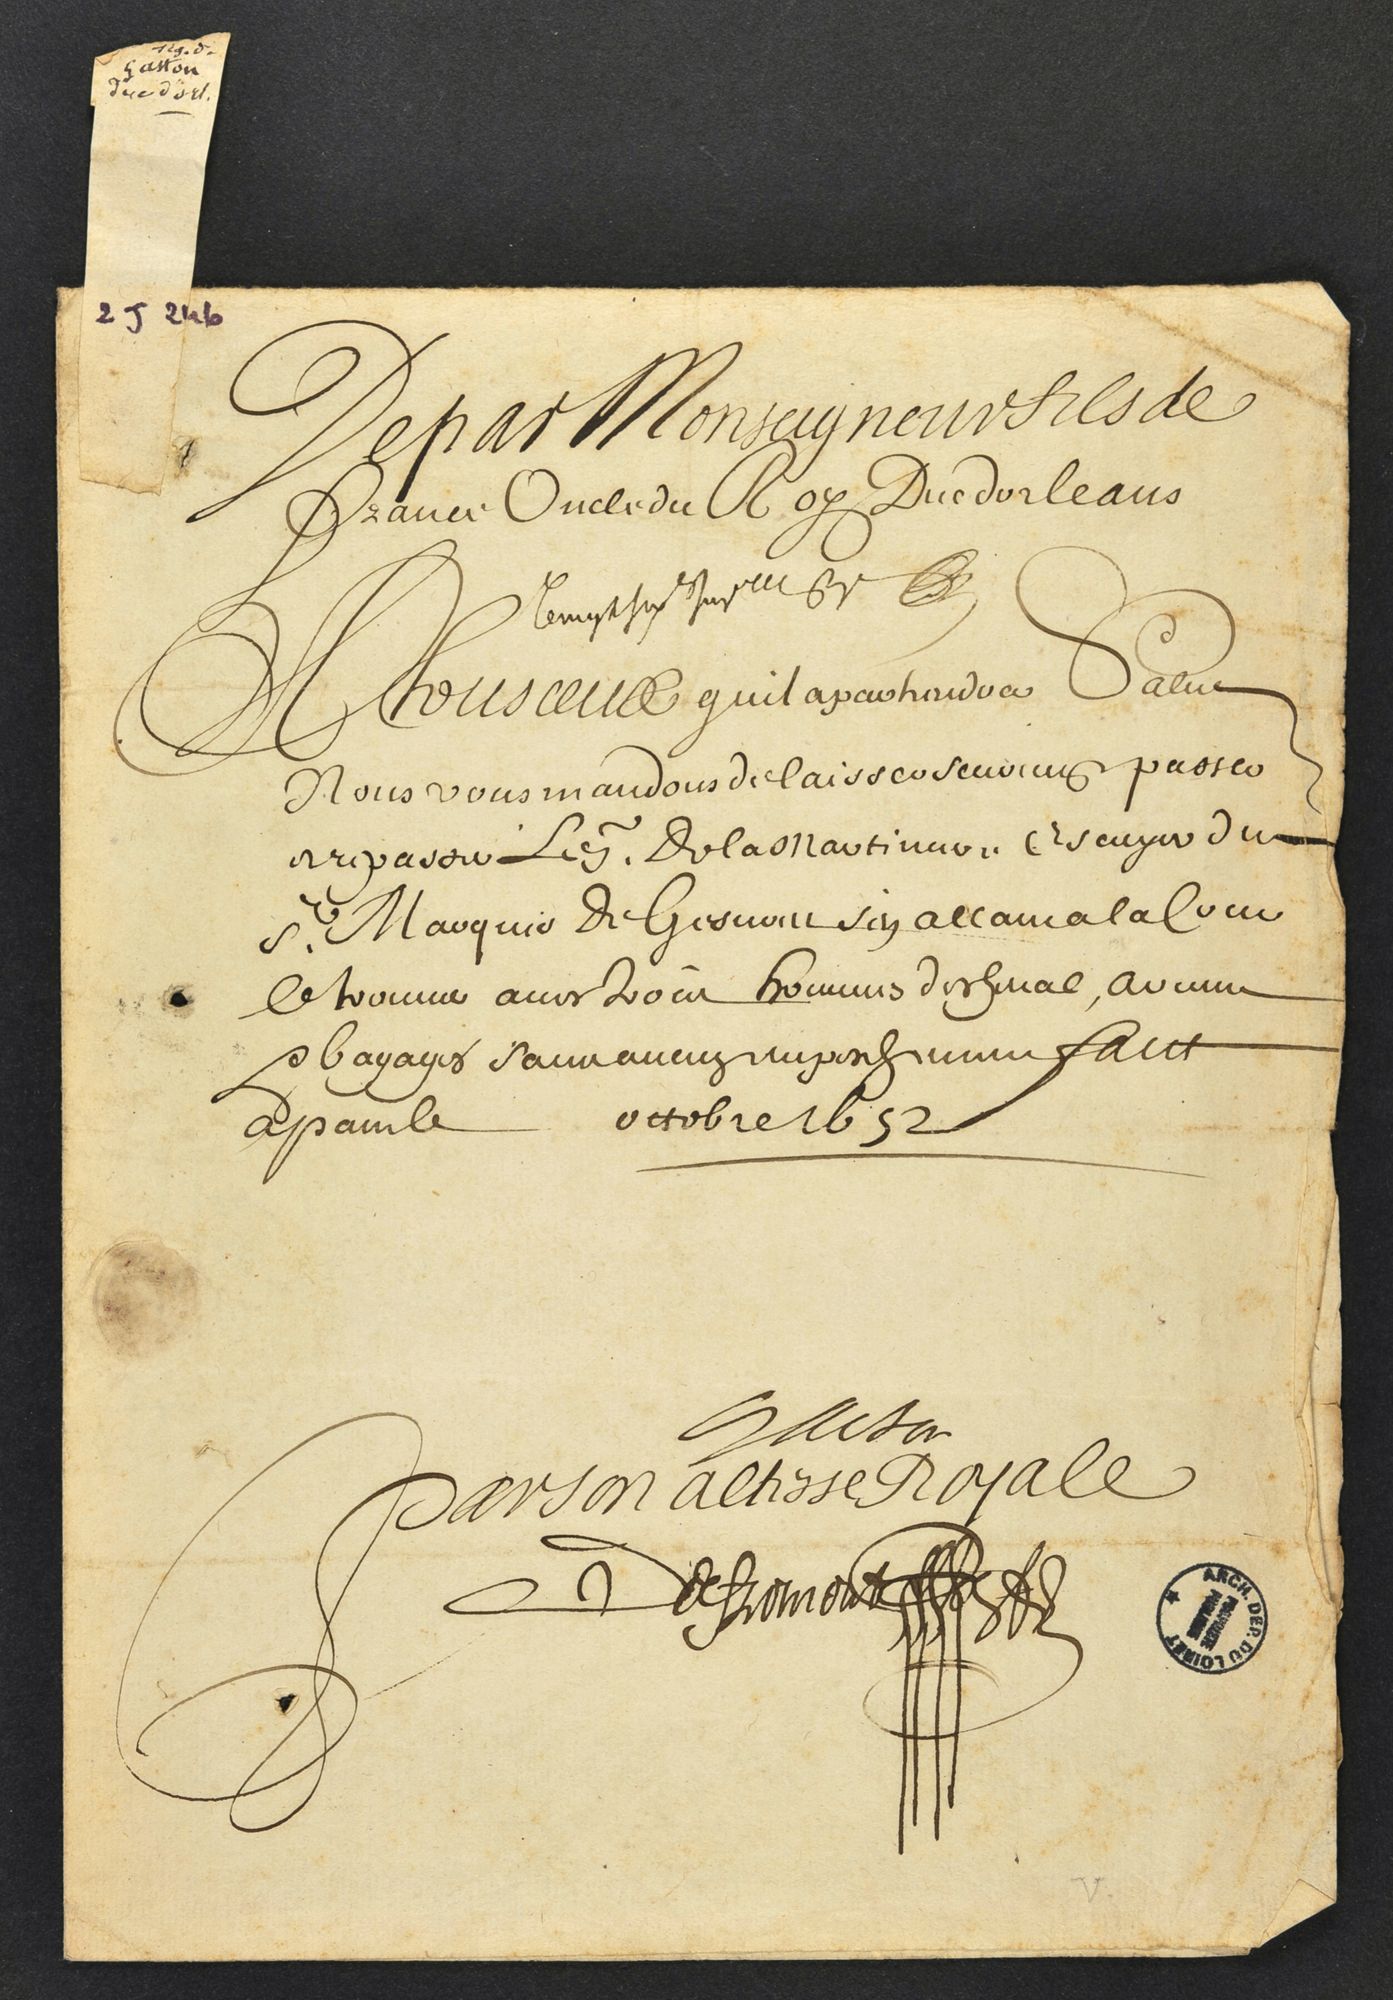 sig. d.
Gaston
duc d'orl.
2 J 246
De par Monseigneur fils de
France Oncle du Roy Duc dorleans
A tous ceux quil apartiendra Salut
Nous vous mandons de laisser seurement passer
et repasser Le Sr. De la Martiniere Escuyer du
Sr. Marquis De sen allant a la Cour
le trouver avec trois hommes de cheval, armes
et bagages sans aucun empeschement faict
a paris le octobre 1652
Gaston
Par son altesse Royale
De fromont
ARCH. DEP. DU LOIRET
V.